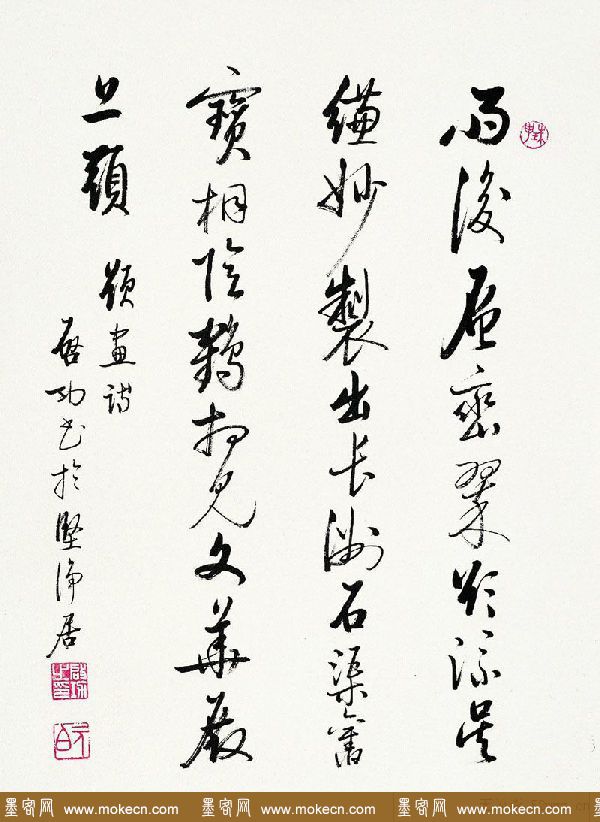 雨後層巒翠欲流吳
縑妙製出長洲石渠舊
寶桐陰鶴見文華殿
上頭 題畫詩
啟功書於堅淨居
啟功之印
元白
墨客网 www.mokecn.com 墨客网 www.mokecn.com 墨客网 www.mokecn.com